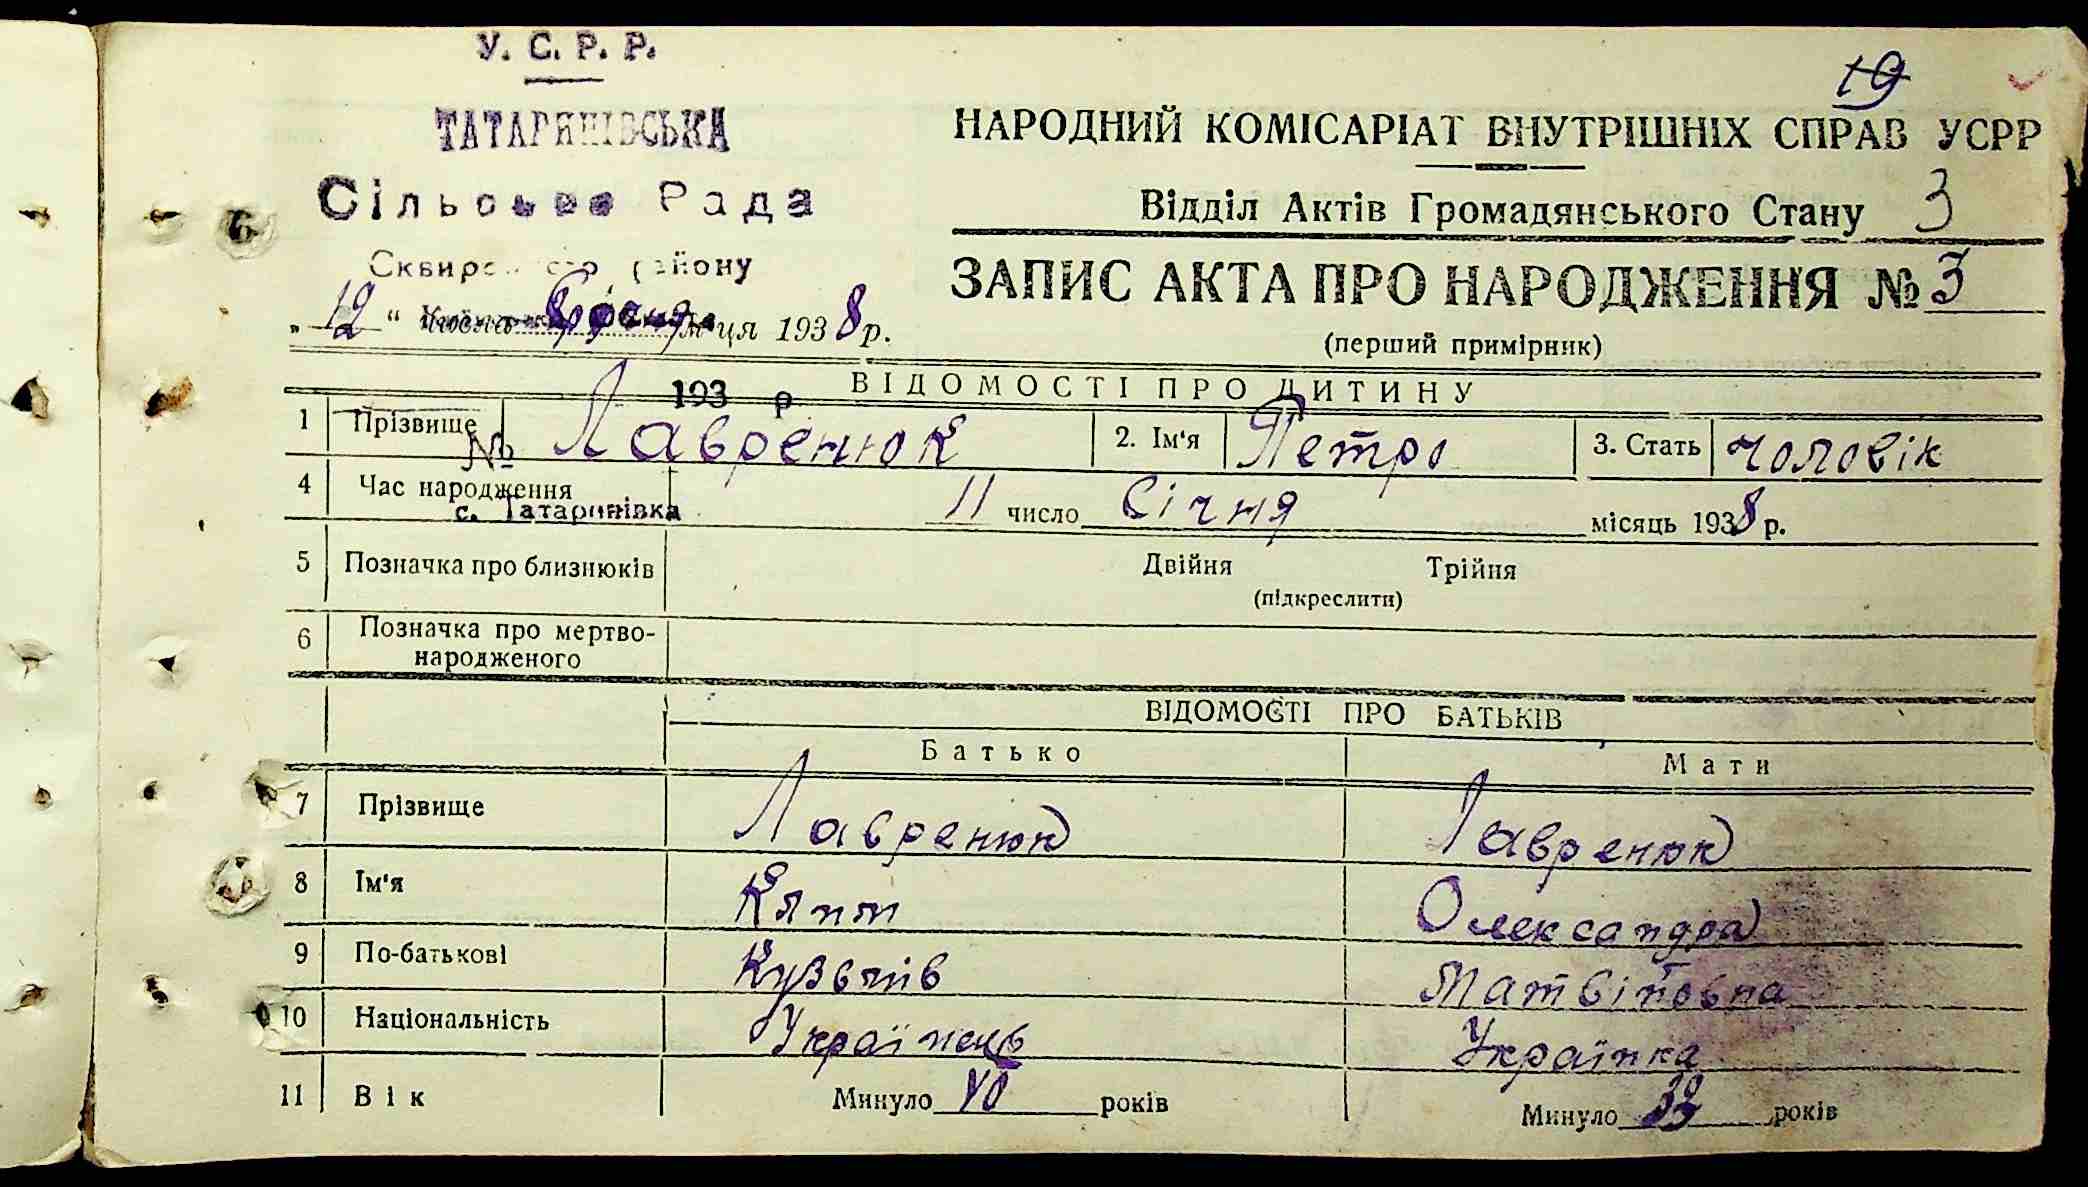 У. С. Р. Р.
19
ТАТАРИНІВСЬКА
НАРОДНИЙ КОМІСАРІАТ ВНУТРІШНІХ СПРАВ УСРР
Сільська Рада
Відділ Актів Громадянського Стану 3
Сквирського району
ЗАПИС АКТА ПРО НАРОДЖЕННЯ № 3
„12“ Січня м-ця 1938 р.
(перший примірник)
ВІДОМОСТІ ПРО ДИТИНУ
193 р
1 Прізвище Лавренюк 2. Ім'я Петро 3. Стать чоловік
№
4 Час народження 11 число Січня місяць 1938 р.
с. Татаринівка
5 Позначка про близнюків Двійня Трійня
(підкреслити)
6 Позначка про мертво-
народженого
ВІДОМОСТІ ПРО БАТЬКІВ
Батько Мати
7 Прізвище Лавренюк Лавренюк
8 Ім'я Олександра
9 По-батькові Кузьмів Матвіївна
10 Національність Українець Українка
11 Вік Минуло 40 років Минуло років